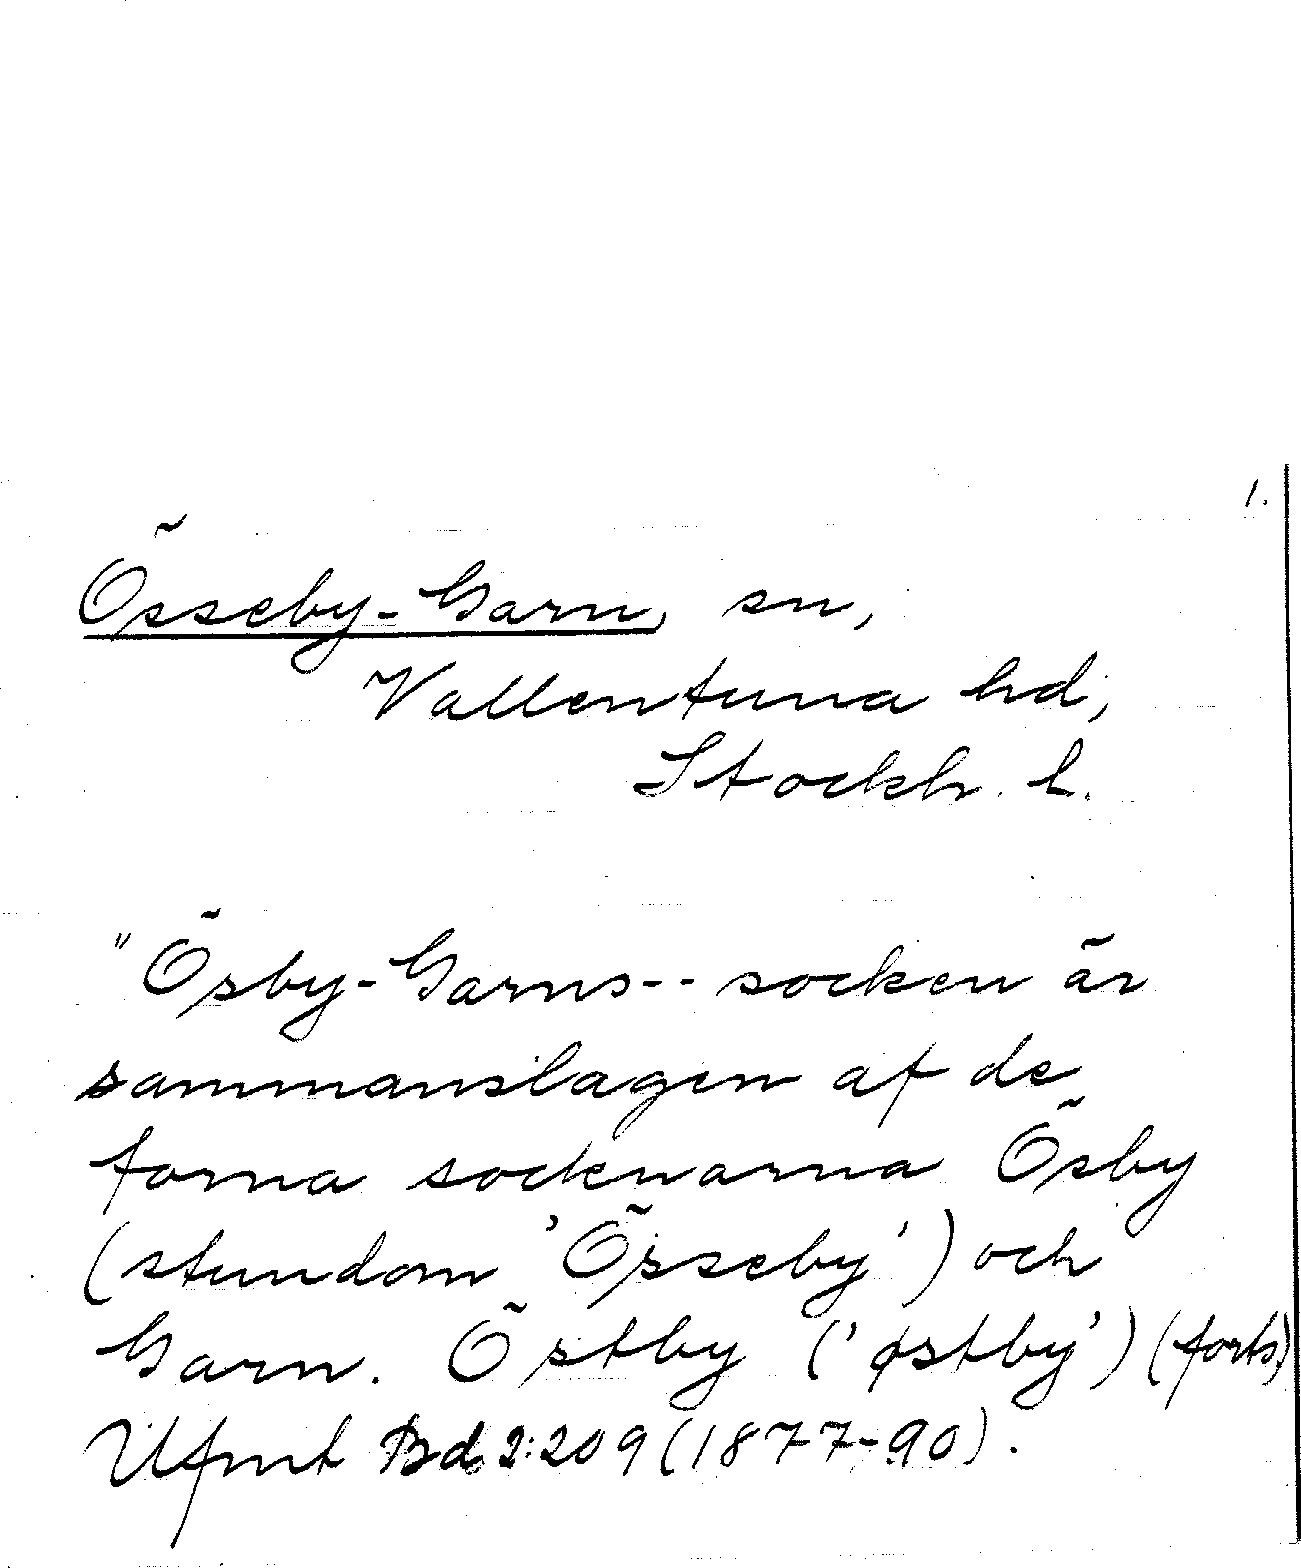 1.
Össeby-Garn, sn,
Vallentuna hd,
Stockh. l.
"Ösby-Garns-- socken är
sammanslagen af de
forna socknarna Ösby
(stundom 'Össeby') och
Garn. Östby ('østby') (forts)
Ufmt Bd 2:209 (1877-90).